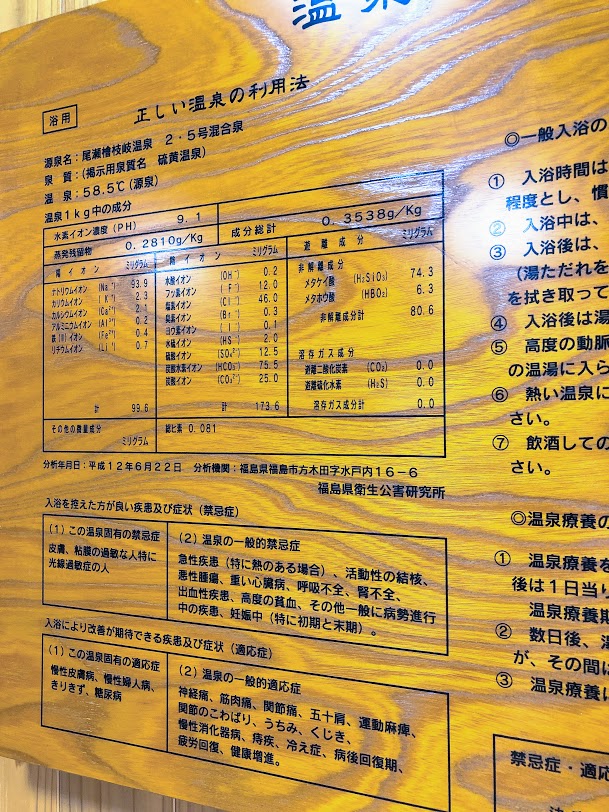 温泉
正しい温泉の利用法
浴用
源泉名：尾瀬檜枝岐温泉　2・5号混合泉
泉　質：(掲示用泉質名　硫黄温泉)
温　泉：58.5℃(源泉)
温泉1kg中の成分
水素イオン濃度(PH)　9.1
蒸発残留物　0.2810g/Kg
成分総計　0.3538g/Kg
陽イオン　ミリグラム
ナトリウムイオン (Na⁺) 93.9
カリウムイオン (K⁺) 2.3
カルシウムイオン (Ca²⁺) 2.1
アルミニウムイオン (Al³⁺) 0.2
鉄(II)イオン (Fe²⁺) 0.4
リチウムイオン (Li⁺) 0.7
計 99.6
陰イオン　ミリグラム
水酸イオン (OH⁻) 0.2
フッ素イオン (F⁻) 12.0
塩素イオン (Cl⁻) 46.0
臭素イオン (Br⁻) 0.3
ヨウ素イオン (I⁻) 0.1
水硫イオン (HS⁻) 2.0
硫酸イオン (SO₄²⁻) 12.5
炭酸水素イオン (HCO₃⁻) 75.5
炭酸イオン (CO₃²⁻) 25.0
計 173.6
遊離成分　ミリグラム
非解離成分
メタケイ酸 (H₂SiO₃) 74.3
メタホウ酸 (HBO₂) 6.3
非解離成分計 80.6
溶存ガス成分
遊離二酸化炭素 (CO₂) 0.0
遊離硫化水素 (H₂S) 0.0
溶存ガス成分計 0.0
その他の微量成分
ミリグラム
総ヒ素 0.081
分析年月日：平成12年6月22日　分析機関：福島県福島市方木田字水戸内16－6
福島県衛生公害研究所
入浴を控えた方が良い疾患及び症状（禁忌症）
(1) この温泉固有の禁忌症
皮膚、粘膜の過敏な人特に
光線過敏症の人
(2) 温泉の一般的禁忌症
急性疾患（特に熱のある場合）、活動性の結核、
悪性腫瘍、重い心臓病、呼吸不全、腎不全、
出血性疾患、高度の貧血、その他一般に病勢進行
中の疾患、妊娠中（特に初期と末期）。
入浴により改善が期待できる疾患及び症状（適応症）
(1) この温泉固有の適応症
慢性皮膚病、慢性婦人病、
きりきず、糖尿病
(2) 温泉の一般的適応症
神経痛、筋肉痛、関節痛、五十肩、運動麻痺、
関節のこわばり、うちみ、くじき、
慢性消化器病、痔疾、冷え症、病後回復期、
疲労回復、健康増進。
◎一般入浴の
① 入浴時間は
程度とし、慣
② 入浴中は、
③ 入浴後は、
（湯ただれを
を拭き取って
④ 入浴後は湯
⑤ 高度の動脈
の温湯に入ら
⑥ 熱い温泉に
さい。
⑦ 飲酒しての
さい。
◎温泉療養の
① 温泉療養を
後は1日当り
温泉療養期
② 数日後、湯
が、その間は
③ 温泉療養に
禁忌症・適応